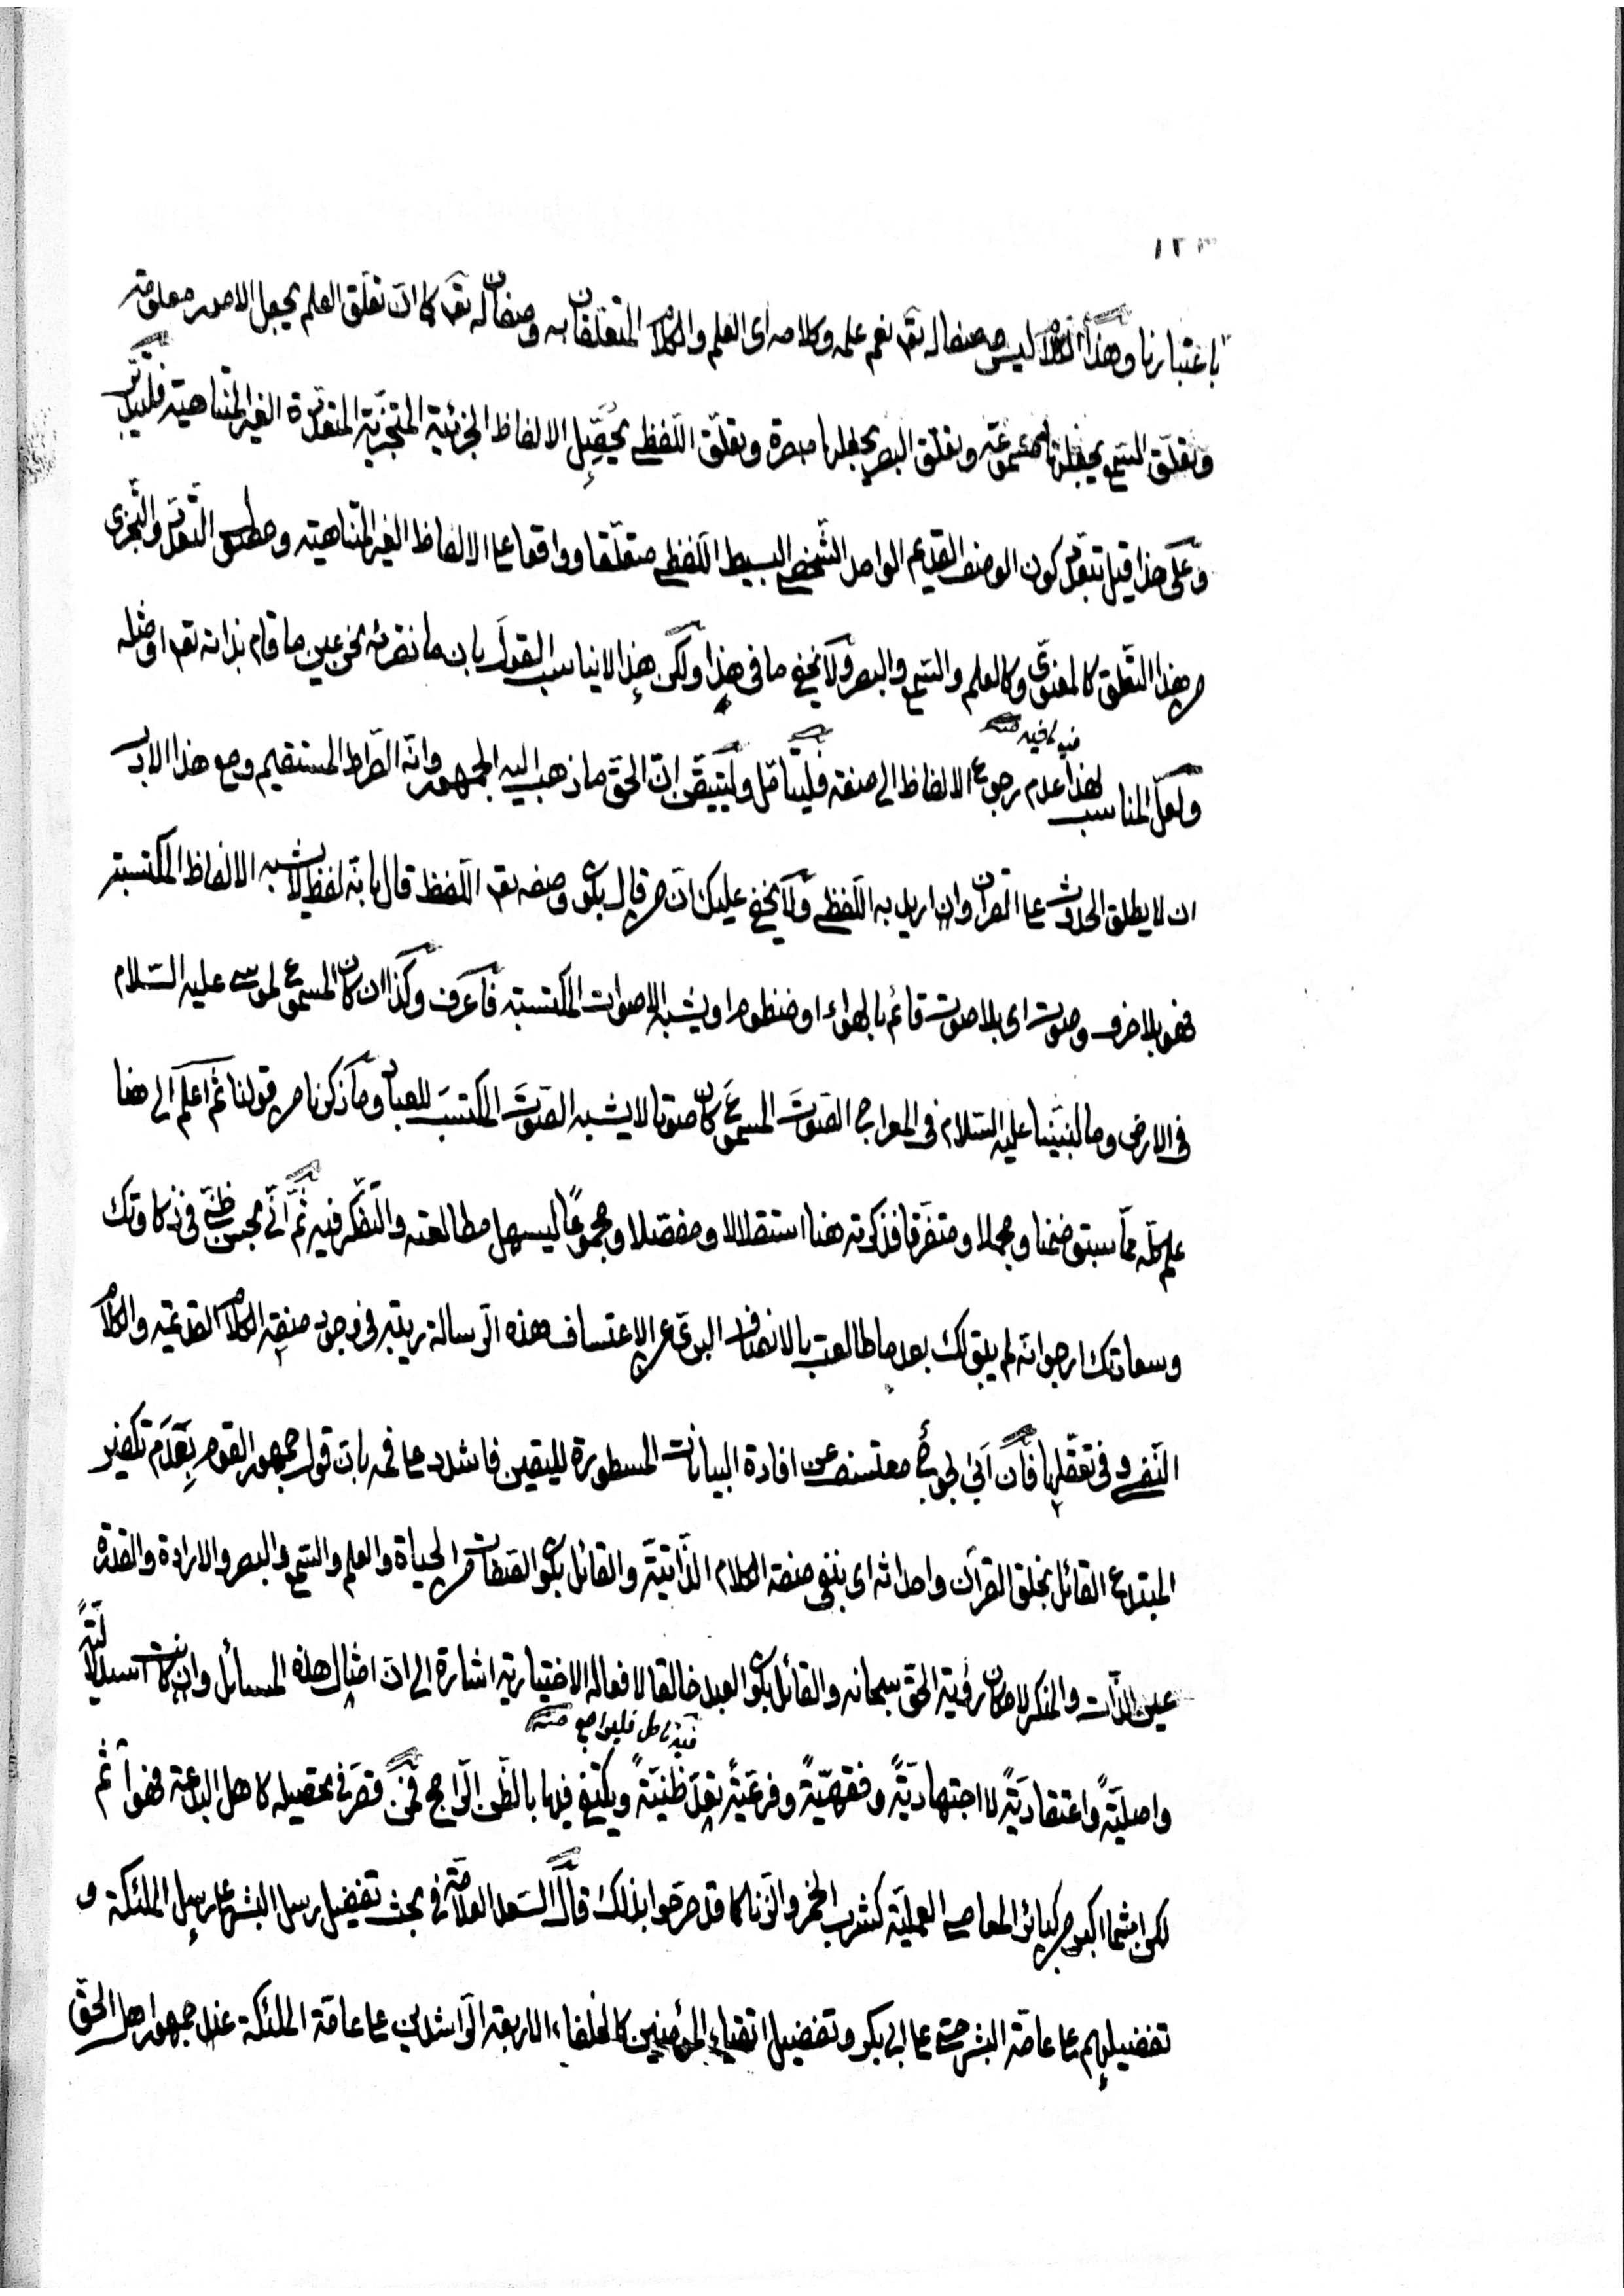 ١٢٣
باعتبارنا وهذا الكلام ليس من صفاته تع نعم علمه وكلامه اى العلم والكلام المتعلقان به وصفان له تع كما ان تعلق العلم يجعل الامور معلومة
وتعلّق السّمع يجعلها مسموعة وتعلّق البصر يجعلها مبصرة وتعلّق اللّفظى يحصّل الالفاظ الجزئية المتجزّية المتعدّدة الغير المتناهية
وعلى هذا قيل كون الوصف القديم الواحد الشّخصى البسيط اللّفظى متعلّقا وواقعا على الالفاظ الغير المتناهية ومطلق التّعدّد والتّجزى
من هذا التّعلّق كالمعنوى وكالعلم والسّمع والبصر ولا يخفى ما فى هذا ولكن هذا لا يناسب القول بان ما نقرئه نحن عين ما قام بذاته تع او مثله
فيه ما فيه منه
ولعلّ المناسب لهذا عدم رجوع الالفاظ الى صفته فليتأمّل وليتيقّن انّ الحقّ ما ذهب اليه الجمهور وانّه الصّراط المستقيم ومع هذا الادب
ان لا يطلق الحدوث على القرآن وان اريد به اللّفظى ولا يخفى عليك انّ من قال بكون وصفه تع اللّفظ قال بانّه لفظ لا يشبه الالفاظ المكتسبة
فهو بلا حرف وصوت اى بلا صوت قائم بالهواء او منظوم او يشبه الاصوات المكتسبة فاعرف وكذا ان كان المسموع لموسى عليه السّلام
فى الارض وما لنبيّنا عليه السّلام فى المعراج الصّوت المسموع كان صوتا لا يشبه الصّوت المكتسب للعباد وما ذكرنا من قولنا ثم اعلم الى هنا
علم كلّه ممّا سبق ضمنا ومجملا ومتفرّقا فذكرته هنا استقلالا ومفصّلا ومجموعًا ليسهل مطالعته والتّفكّر فيه ثمّ انّى بحسن ظنّى فى ذكاوتك
وسعادتك ارجو انّه لم يبق لك بعد ما طالعت بالانصاف البرئ عن الاعتساف هذه الرّسالة ريبة فى وجود صفة الكلام القديمة والكلام
النّفسى وفى تعقّلها فان ابى لجوج معتسف عن افادة البيانات المسطورة لليقين فاشدد على فمه بان قول جمهور القوم بعدم تكفير
المبتدع القائل بخلق القرآن واحداثه اى بنفى صفة الكلام الذّاتيّة والقائل بكون الصّفات من الحياة والعلم والسّمع والبصر والارادة والقدرة
عين الذّات والمنكر لامكان رؤية الحقّ سبحانه والقائل بكون العبد خالقا لافعاله الاختيارية اشارة الى انّ امثال هذه المسائل وان كانت استدلاليّةً
فيه تأمل فليراجع منه
واصليّةً واعتقاديّةً لا اجتهاديّةً وفقهيّةً وفرعيّةً تعدّ ظنّيّةً ويكتفى فيها بالظّن الرّاجح فمن قصر فى تحصيله كاهل البدعة فهو آثم
لكن اثما اكبر من كبائر المعاصى العمليّة كشرب الخمر والزّنا كما قد صرّحوا بذلك قال السّعد العلّامة فى بحث تفضيل رسل البشر على رسل الملئكة و
تفضيلهم على عامّة البشر حتّى على ابى بكر وتفضيل اتقياء المؤمنين كالخلفاء الاربعة الرّاشدين على عامّة الملئكة عند جمهور اهل الحقّ